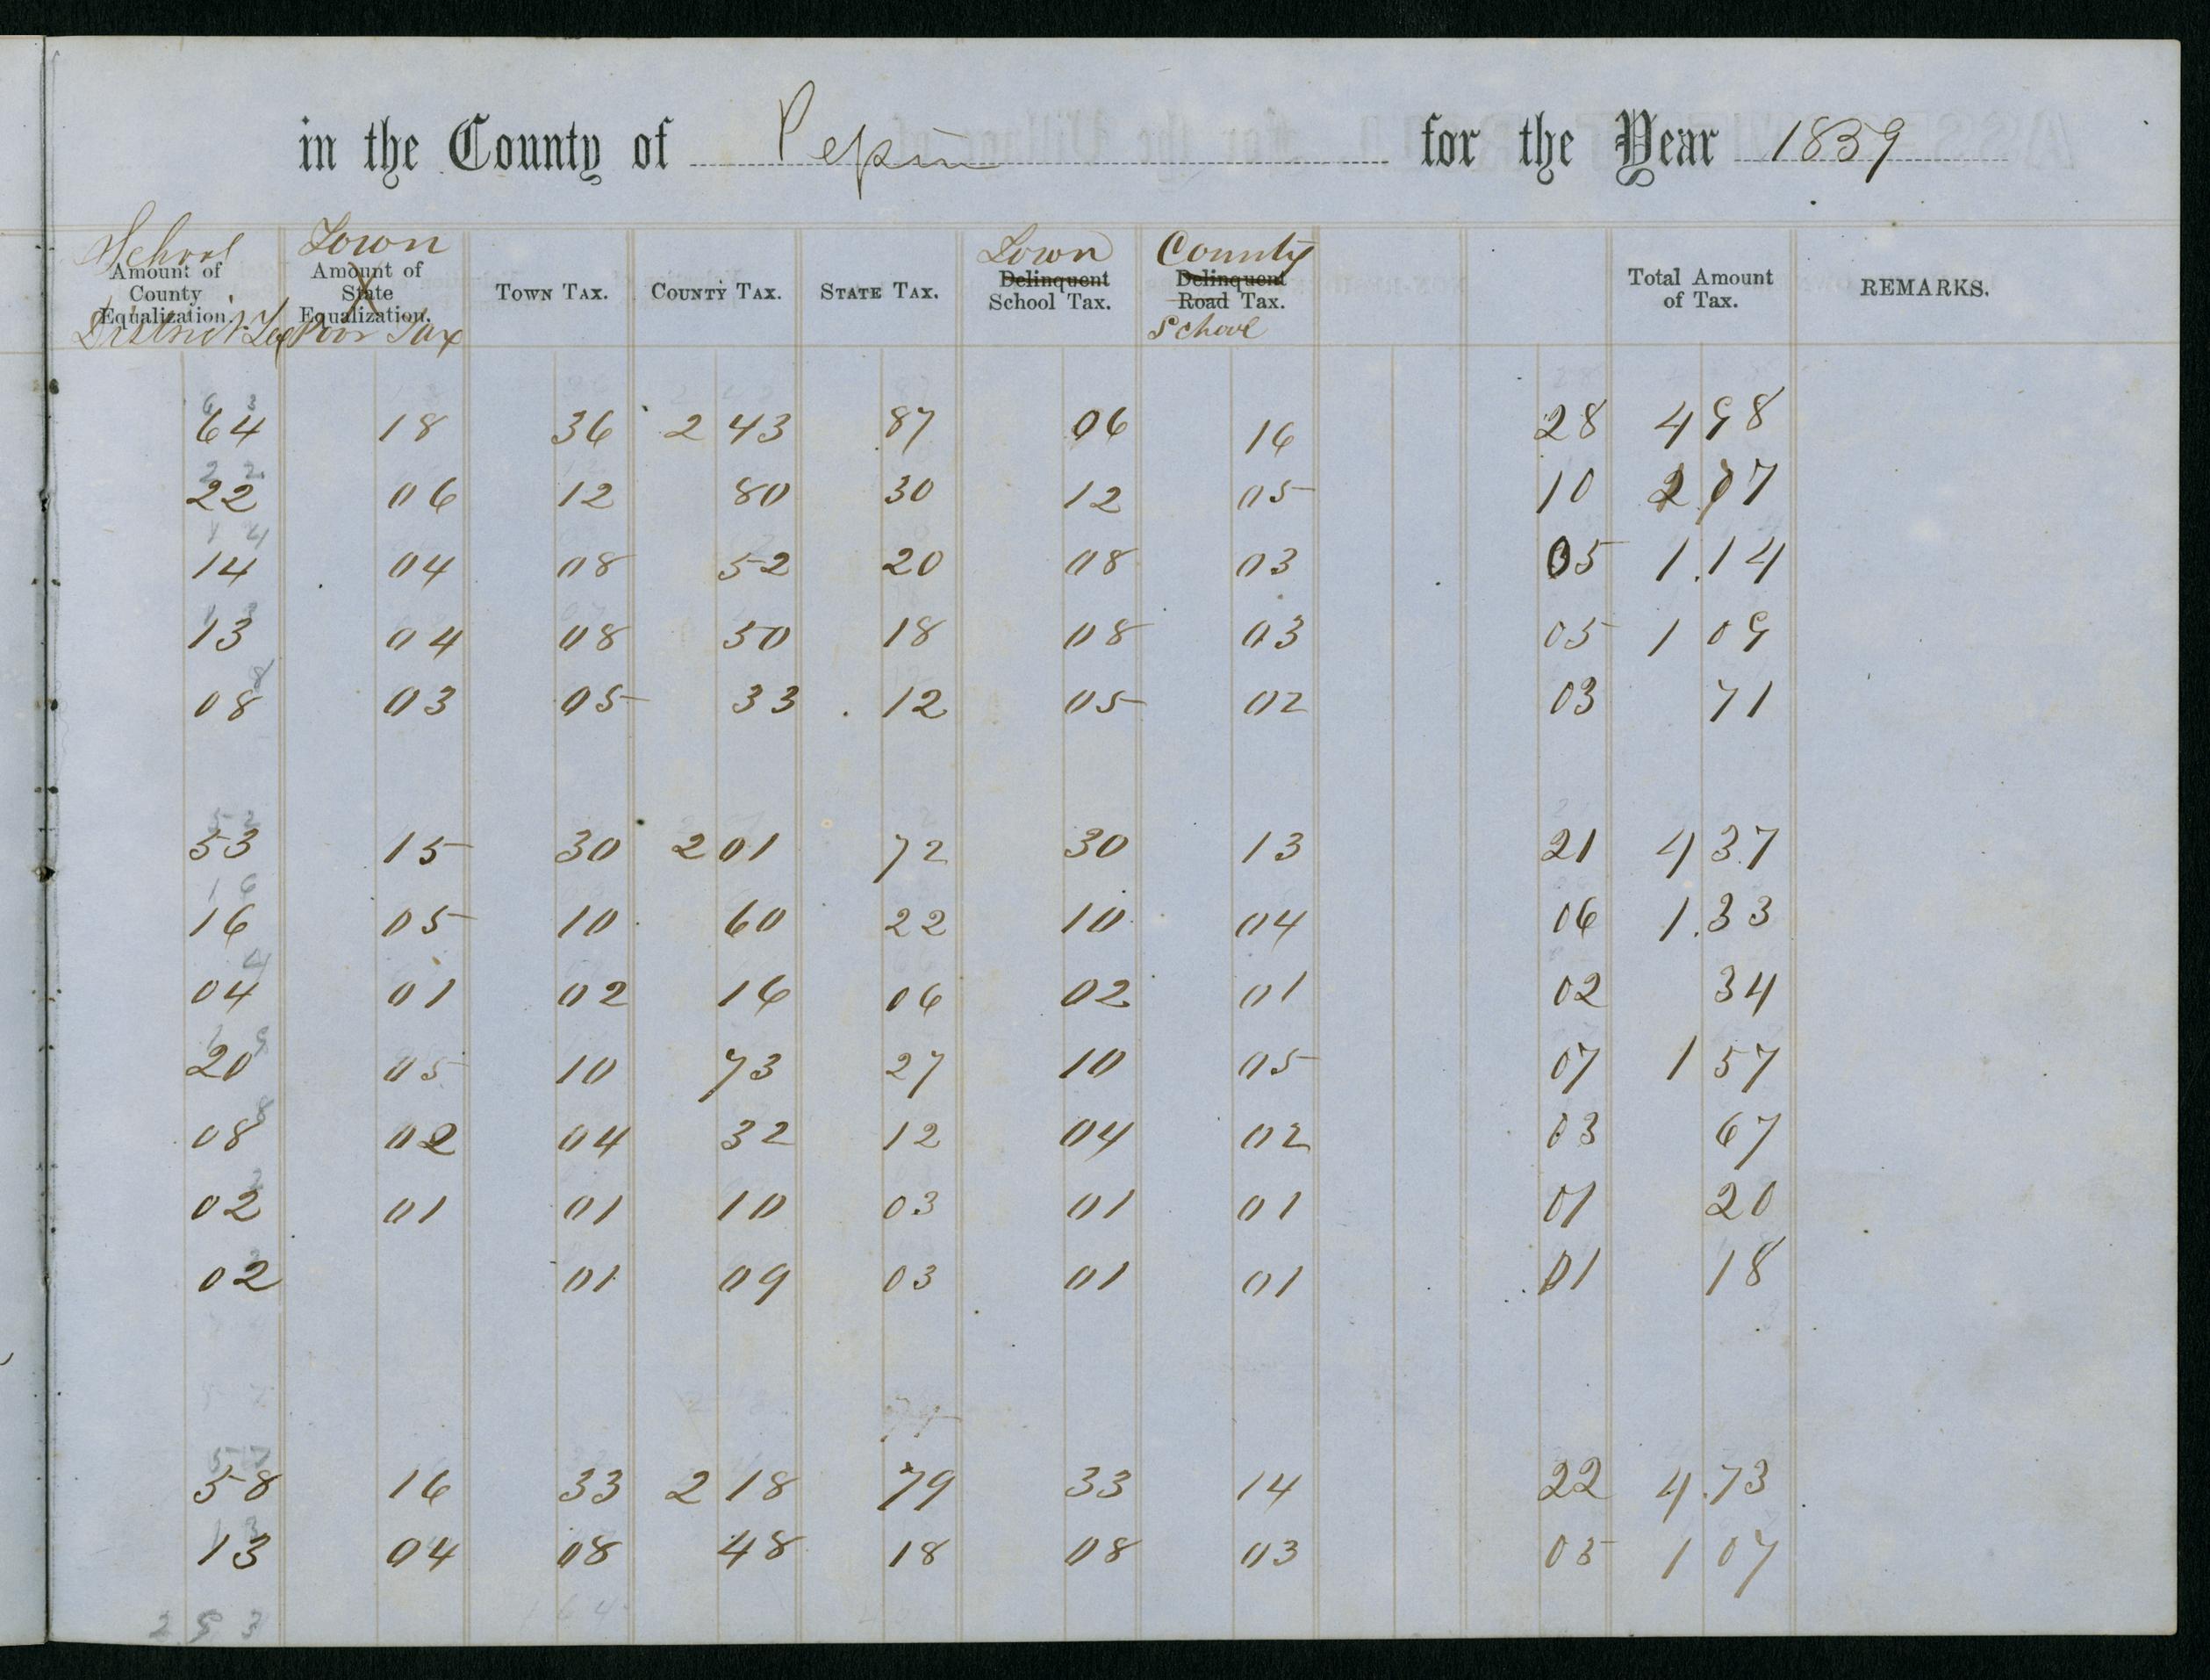 in the County of Pepin for the Year 1859
School Town Town County
Amount of County Equalization. Amount of State Equalization. TOWN TAX. COUNTY TAX. STATE TAX. Delinquent School Tax. Delinquent Road Tax. Total Amount of Tax. REMARKS.
District Tax Poor Tax School
64 18 36 2 43 87 06 16 28 4 98
22 06 12 80 30 12 05 10 2 07
14 04 08 52 20 08 03 05 1.14
13 04 08 50 18 08 03 05 1 09
08 03 05 33 12 05 02 03 71
53 15 30 2 01 72 30 13 21 4 37
16 05 10 60 22 10 04 06 1.33
04 01 02 16 06 02 01 02 34
20 05 10 73 27 10 05 07 1 57
08 02 04 32 12 04 02 03 67
02 01 01 10 03 01 01 01 20
02 01 09 03 01 01 01 18
58 16 33 2 18 79 33 14 22 4.73
13 04 08 48 18 08 03 05 1 07